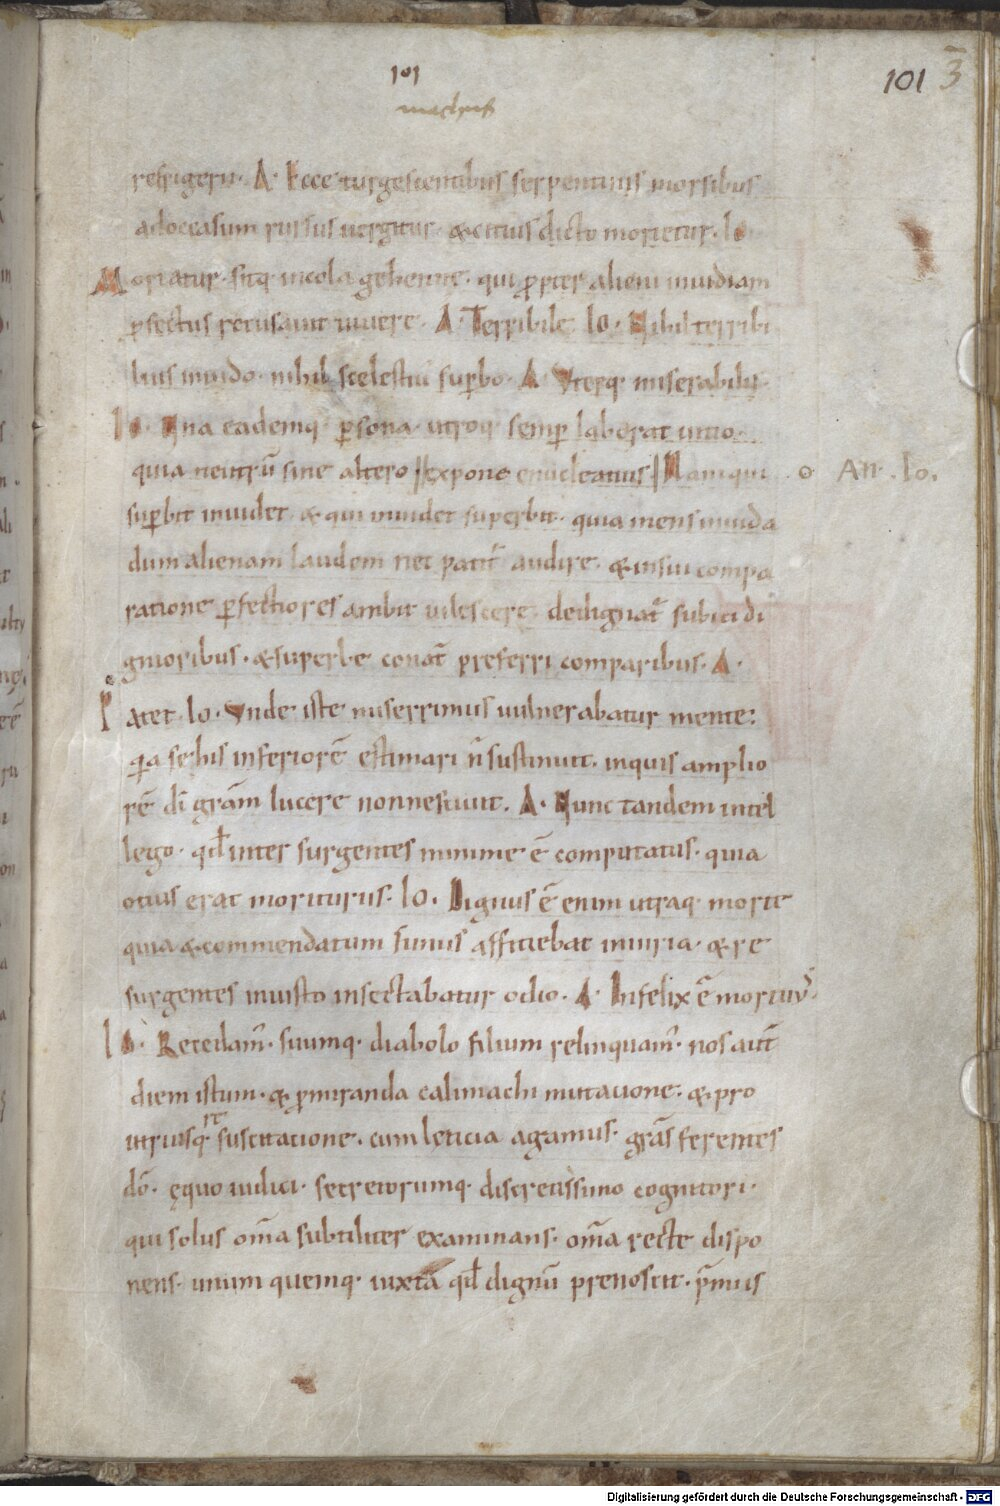 101
machus
101 3̄
refrigerii· A· Ecce turgescentibus serpentinis morsibus
ad occasum rursus uergitur· & citius dicto morietur· Io
Moriatur· sitq· incola gehennę· qui ꝓpter alieni inuidiam
ꝓfectus recusauit uiuere· A· Terribile· Io· Nihil terribi
lius inuido· nihil scelestiu suꝑbo· A· Vterq· miserabilis·
Io· Vna eademq· ꝑsona· utroq· semꝑ laborat uitio
quia neutrū sine altero ‖ expone enucleatius ‖ Nam qui
suꝑbit inuidet· & qui inuidet superbit· quia mens inuida
dum alienam laudem nec patit᷑ audire· & in sui compa
ratione ꝑfectiores ambit uilescere· dedignat᷑ subici di
gnioribus· & superbe conat᷑ preferri comparibus· A·
Patet· Io· Vnde iste miserrimus uulnerabatur mente:
qia se his inferiorē estimari n̄ sustinuit· in quis amplio
rē dī grām lucere non nesciuit· A· Nunc tandem intel
lego· qđ inter surgentes minime ē computatus· quia
otius erat moriturus· Io· Dignus ē enim utraq· morte
quia & commendatum funus afficiebat iniuria· & re
surgentes iniusto insectabatur odio· A· Infelix ē mortuꝰ·
Io· Recedam᷑· suumq· diabolo filium relinquam᷑· nos aut̄
diem istum· & ꝓ miranda calimachi mutatione· & pro
utriusq· resuscitatione· cum lęticia agamus· grās ferentes
dō· ęquo iudici· secretorumq· discretissimo cognitori·
qui solus om̄a subtiliter examinans· om̄a recte dispo
nens· unum quemq· iuxta qđ dignū prenoscit· p̄mus
An· Io·
Digitalisierung gefördert durch die Deutsche Forschungsgemeinschaft - DFG